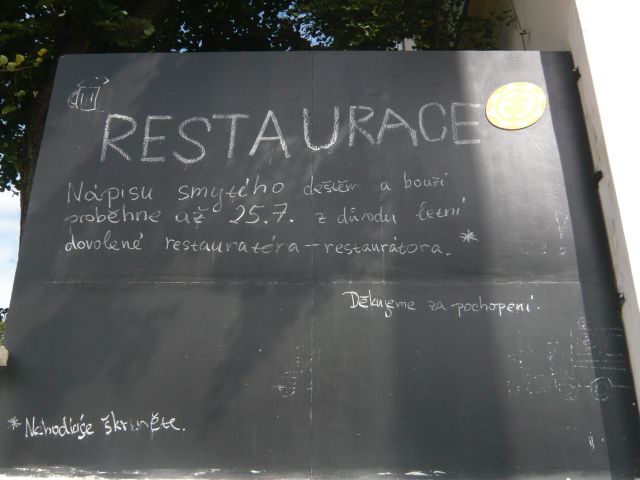 RESTAURACE
Nápisu smytého deštěm a bouří
proběhne už 25.7. z důvodu letní
dovolené restauratéra – restaurátora.*
Děkujeme za pochopení.
*Nehodící se škrtněte.